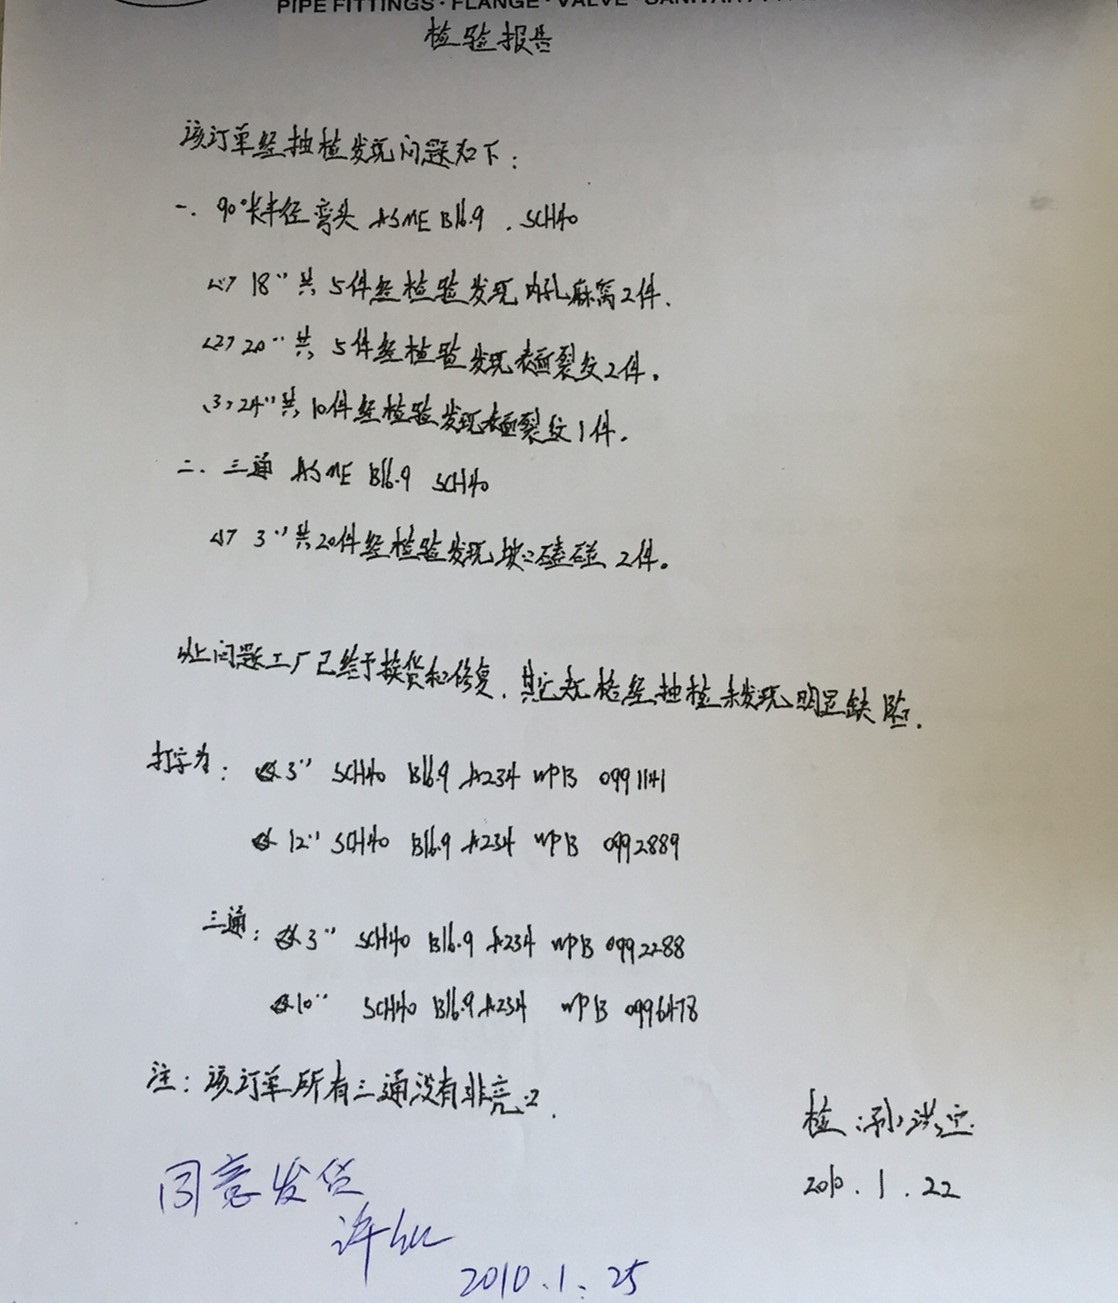 PIPE FITTINGS · FLANGE · VALVE · SANITARY
检验报告
该订单经抽检发现问题如下：
一. 90°长半径弯头 ASME B16.9 . SCH40
<1> 18" 共5件经检验发现内孔麻窝2件.
<2> 20" 共5件经检验发现表面裂纹2件.
<3> 24" 共10件经检验发现表面裂纹1件.
二. 三通 ASME B16.9 SCH40
<1> 3" 共20件经检验发现坡口磕碰2件.
以上问题工厂已给予换货和修复. 其它规格经抽检未发现明显缺陷.
打字为: 3" SCH40 B16.9 A234 WPB 0991141
12" SCH40 B16.9 A234 WPB 0992889
三通: 3" SCH40 B16.9 A234 WPB 0992288
10" SCH40 B16.9 A234 WPB 0996478
注: 该订单所有三通没有非亮口.
检:孙洪
2010.1.22
同意发货
许
2010.1.25